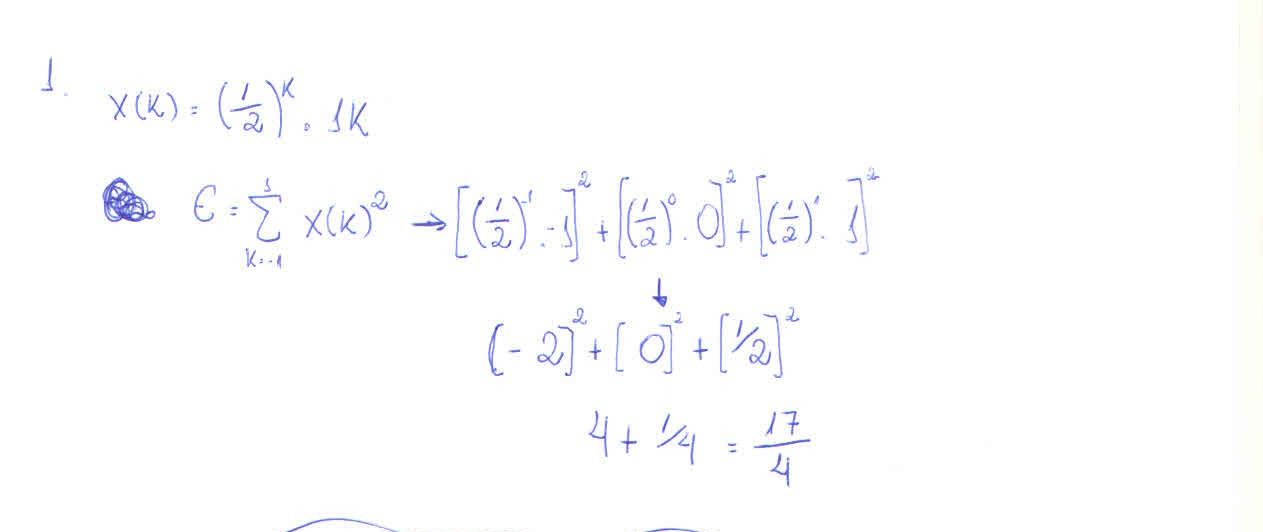 1.
X(K) = (1/2)^K . 1K
E = ∑_{K=-1}^{1} X(K)^2 → [(1/2)^-1 . -1]^2 + [(1/2)^0 . 0]^2 + [(1/2)^1 . 1]^2
↓
(-2]^2 + [0]^2 + [1/2]^2
4 + 1/4 = 17/4